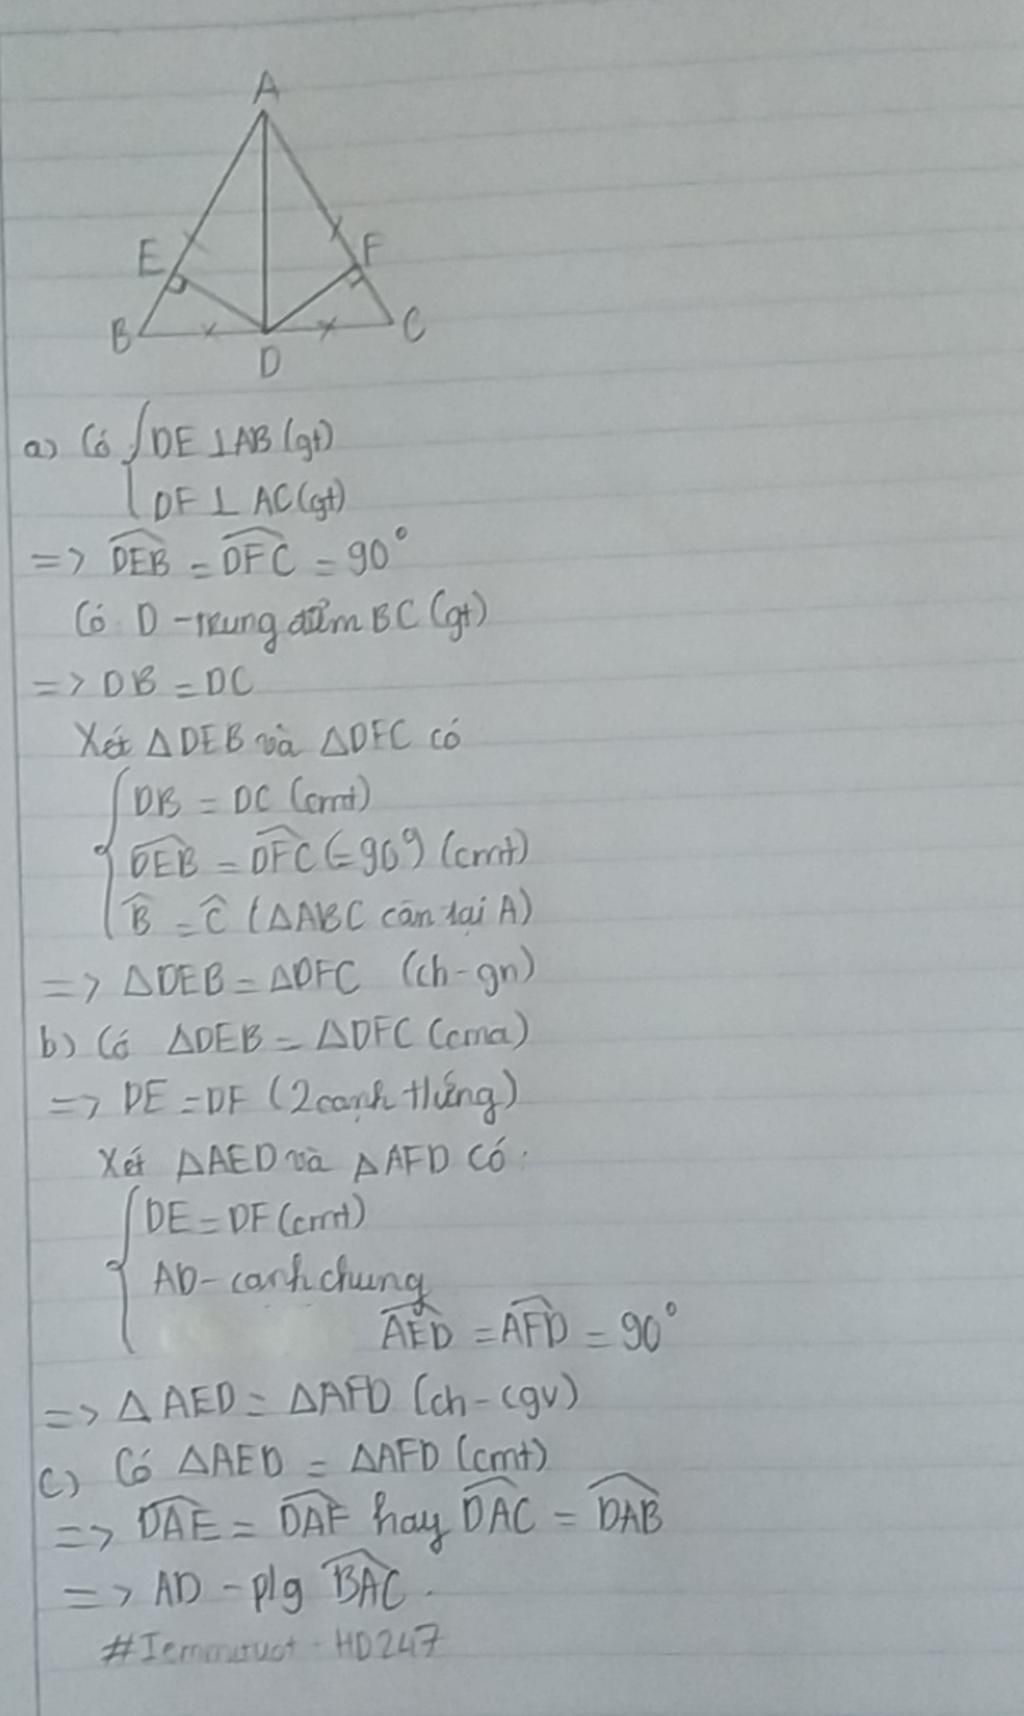 A
E
F
B
C
D
a) Có { DE ⊥ AB (gt)
DF ⊥ AC (gt)
=> DEB^ = DFC^ = 90°
Có D - trung điểm BC (gt)
=> DB = DC
Xét ΔDEB và ΔDFC có
{ DB = DC (cmt)
DEB^ = DFC^ (= 90°) (cmt)
B^ = C^ (ΔABC cân tại A)
=> ΔDEB = ΔDFC (ch - gn)
b) Có ΔDEB = ΔDFC (cma)
=> DE = DF (2 cạnh tứng)
Xét ΔAED và ΔAFD có:
{ DE = DF (cmt)
AD - cạnh chung
AED^ = AFD^ = 90°
=> ΔAED = ΔAFD (ch - cgv)
c) Có ΔAED = ΔAFD (cmt)
=> DAE^ = DAF^ hay DAC^ = DAB^
=> AD - p/g BAC^.
HD247